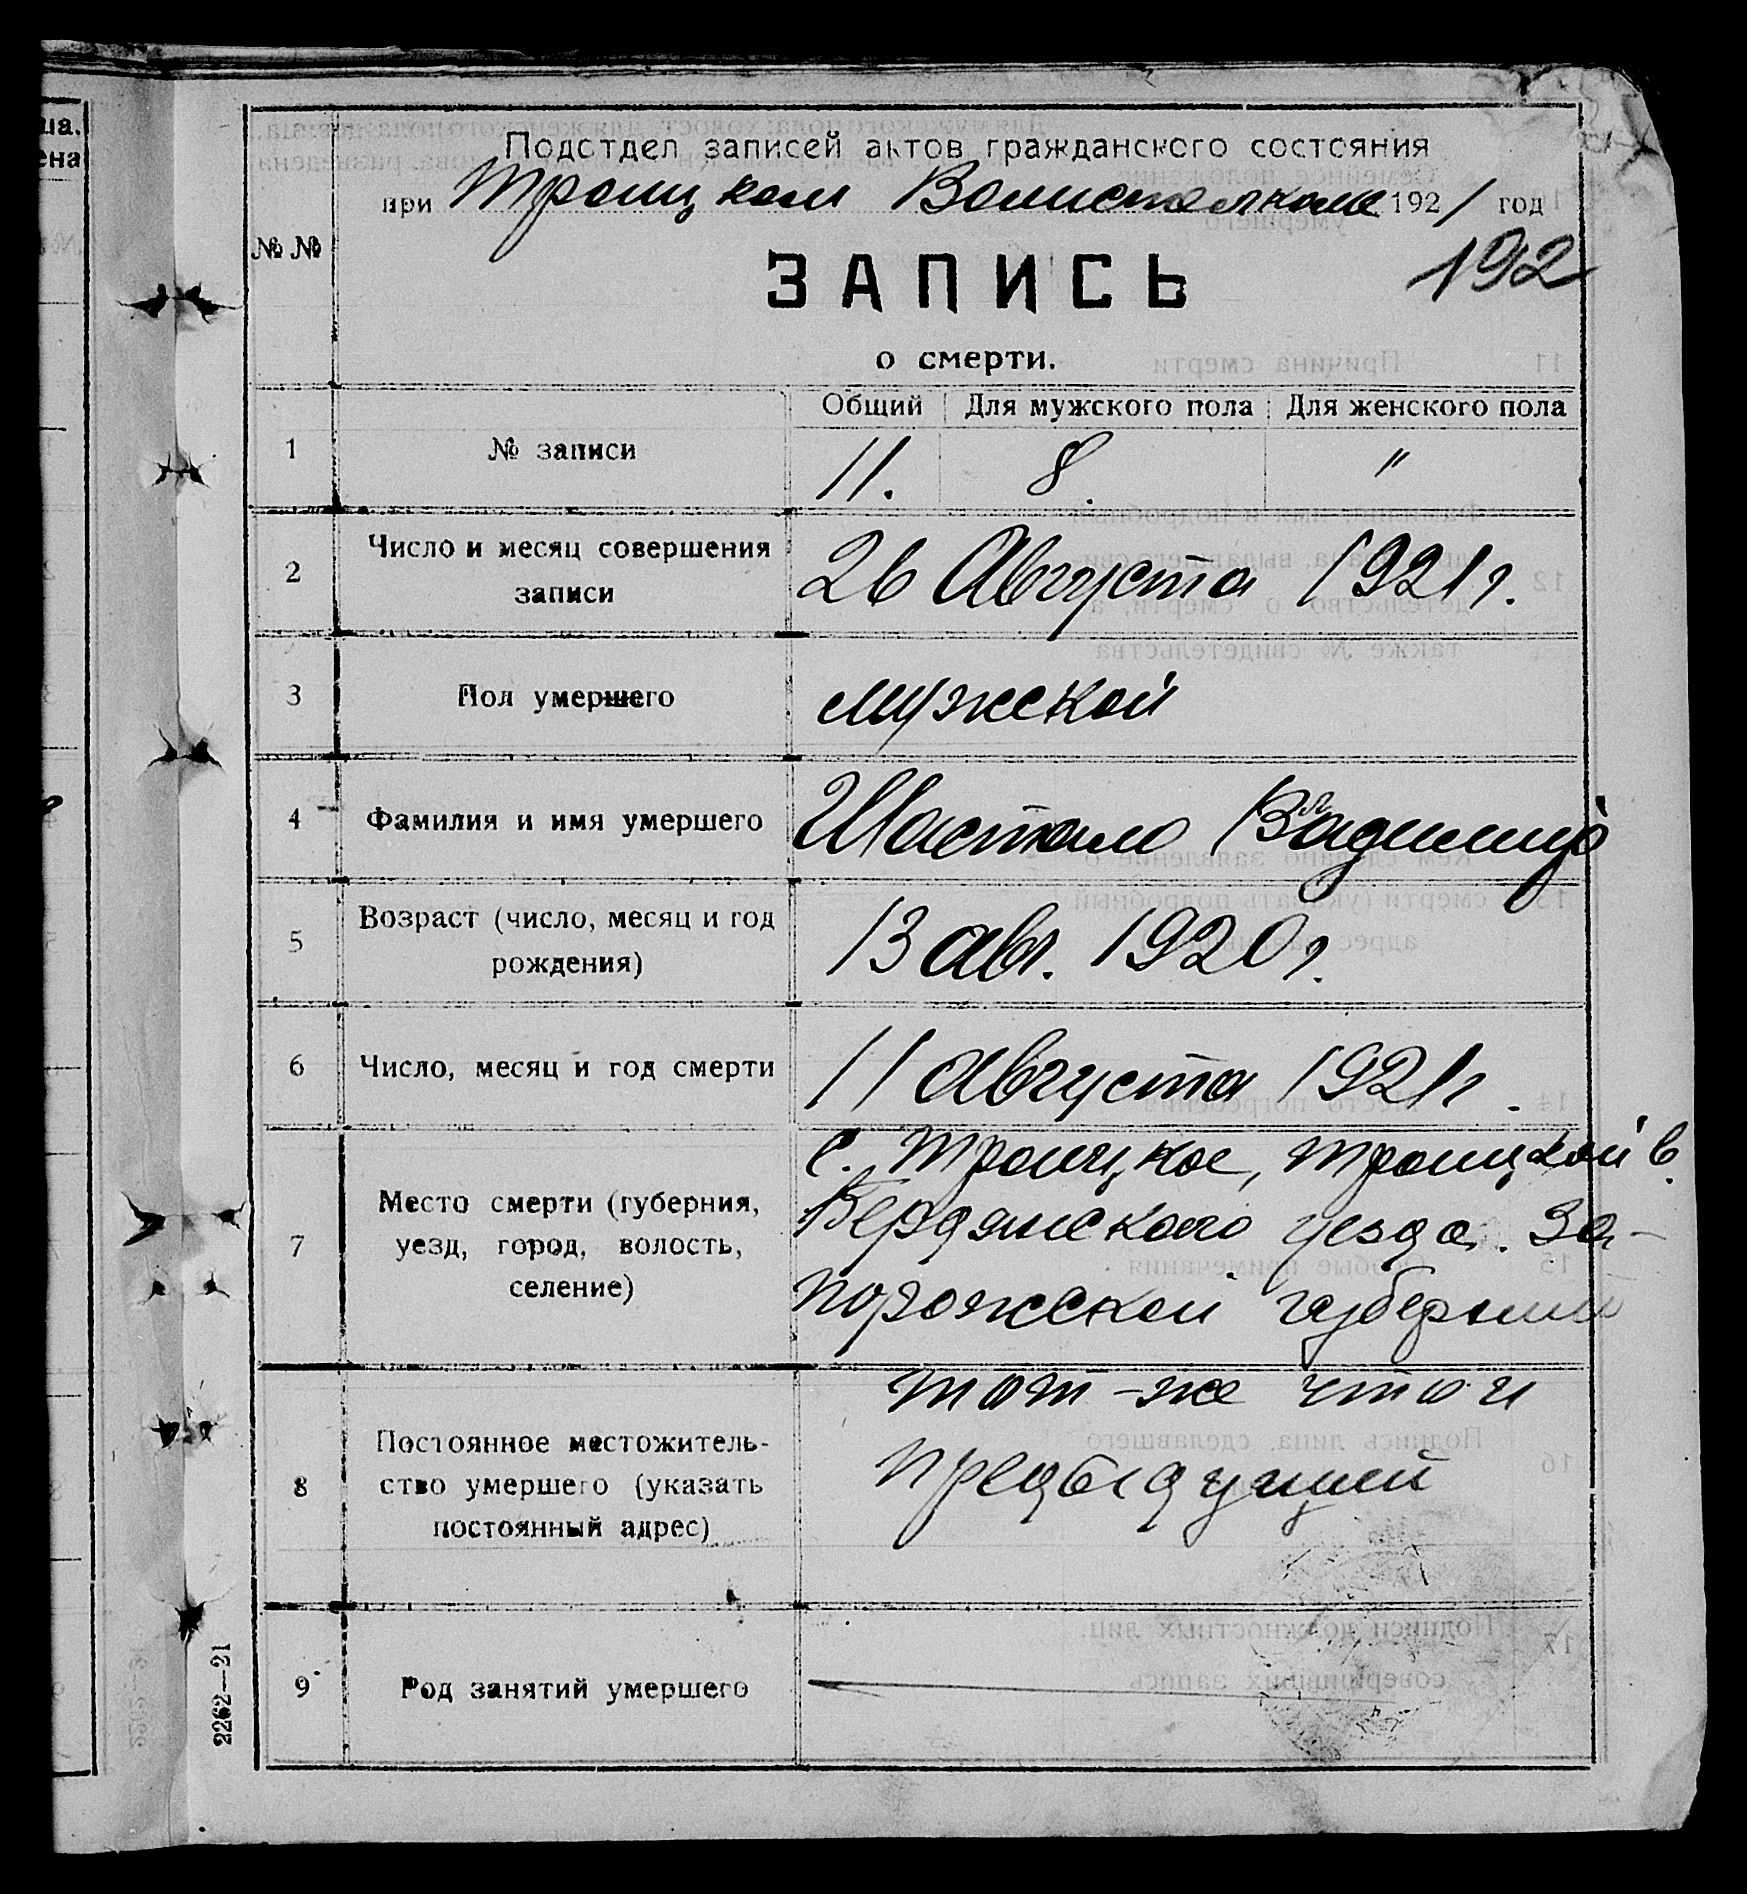 Подотдел записей актов гражданского состояния
при Троицком Волисполкоме 1921 год
192
№ №
ЗАПИСЬ
о смерти.
Общий Для мужского пола Для женского пола
1 № записи 11. 8. "
2 Число и месяц совершения
записи
26 Августа 1921 г.
3 Пол умершего мужской
4 Фамилия и имя умершего Шастало
5 Возраст (число, месяц и год
рождения)
13 авг. 1920 г.
6 Число, месяц и год смерти 11 августа 1921 г.
7 Место смерти (губерния,
уезд, город, волость,
селение)
с. Троицкое, Троицкой в.
Бердянского уезда. За-
порожской губернии
8 Постоянное местожитель-
ство умершего (указать
постоянный адрес)
тот-же что и
предыдущий
9 Род занятий умершего
2262—21